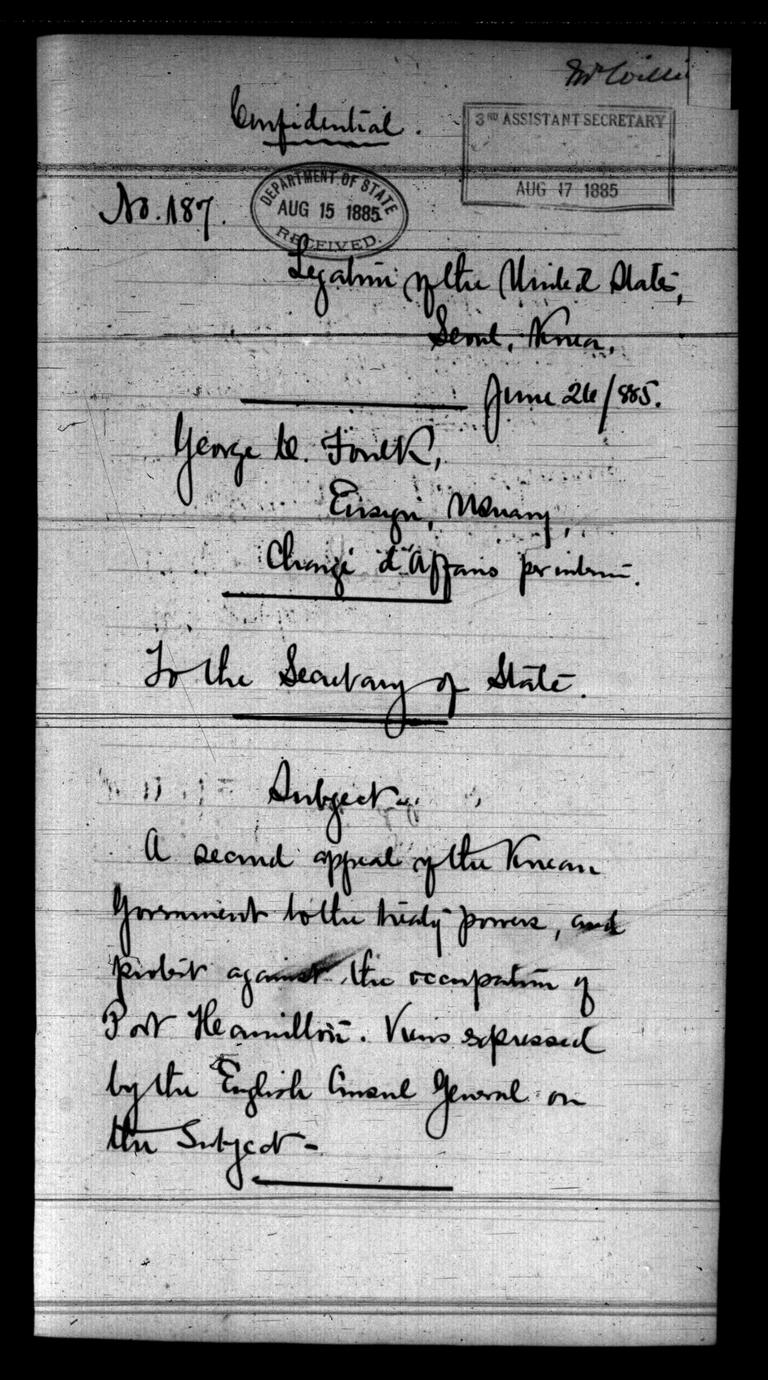 Mr Willi
Confidential.
3RD ASSISTANT SECRETARY
AUG 17 1885
No. 187.
DEPARTMENT OF STATE
AUG 15 1885
RECEIVED.
Legation of the United States,
Seoul, Korea,
June 26/885.
George C. Foulk,
Ensign, US Navy,
Chargé d'Affaires per interim.
To the Secretary of State.
Subject -
A second appeal of the Korean
Government to the treaty powers, and
protest against the occupation of
Port Hamilton. Views expressed
by the English Consul General on
the Subject -